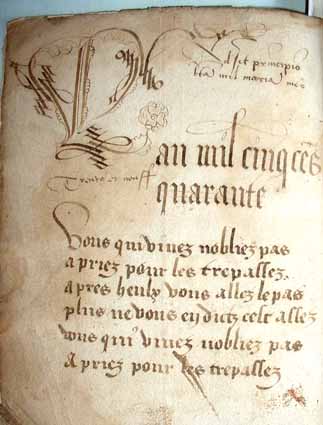 sit principio
maria
an mil cinq cẽs
quarante
Vous qui vivez nobliez pas
a priez pour les trepassez
apres heulx vous allez le pas
plus ne vous en dictz cest assez
vous qui vivez noblies pas
a priez pour les trepassez